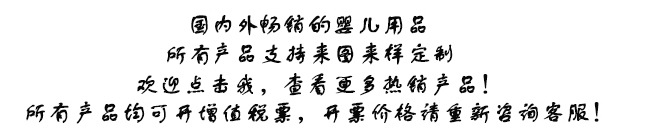 国内外畅销的婴儿用品
所有产品支持来图来样定制
欢迎点击我，查看更多热销产品！
所有产品均可开增值税票，开票价格请重新咨询客服！